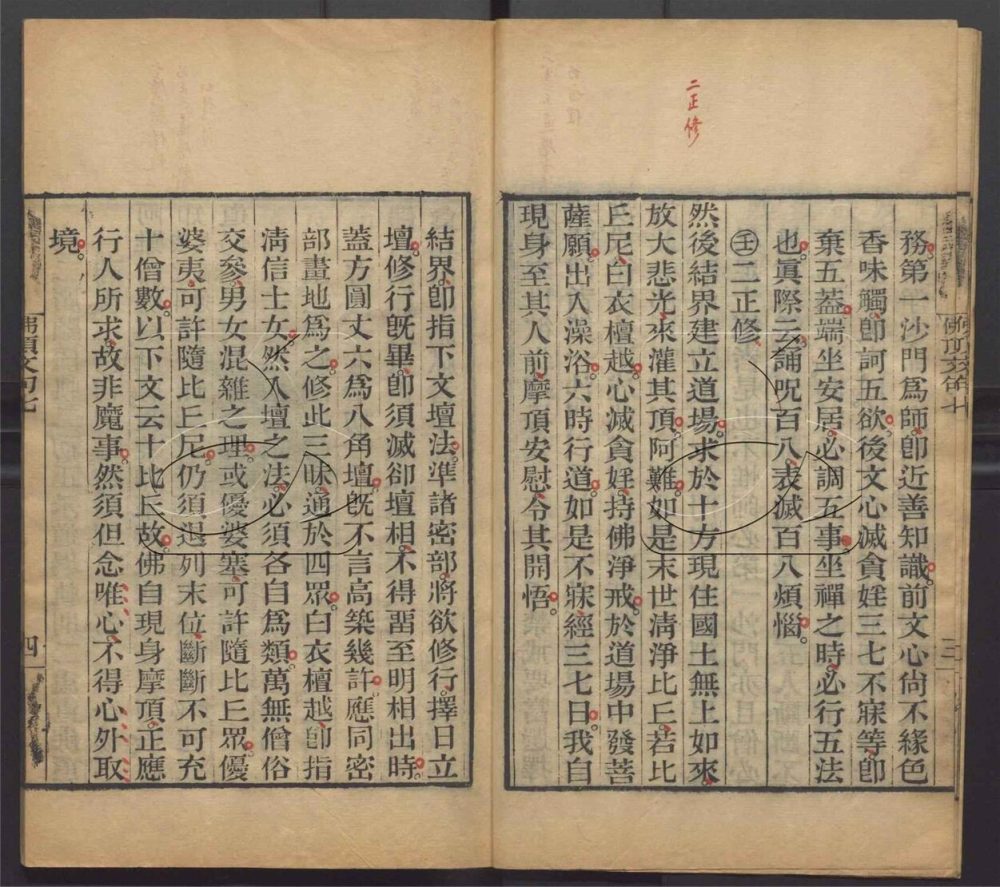 二正修
務第一沙門為師卽近善知識前文心尙不緣色
香味觸卽訶五欲後文心滅貪婬三七不寐等卽
棄五蓋端坐安居必調五事坐禪之時必行五法
也眞際云誦呪百八表滅百八煩惱
㊂二正修
然後結界建立道場求於十方現住國土無上如來
放大悲光來灌其頂阿難如是末世淸淨比丘若比
丘尼白衣檀越心滅貪婬持佛淨戒於道場中發菩
薩願出入澡浴六時行道如是不寐經三七日我自
現身至其人前摩頂安慰令其開悟
結界卽指下文壇法準諸密部將欲修行擇日立
壇修行旣畢卽須滅卻壇相不得留至明相出時
蓋方圓丈六為八角壇旣不言高築幾許應同密
部畫地為之修此三昧通於四眾白衣檀越卽指
淸信士女然入壇之法必須各自為類萬無僧俗
交參男女混雜之理或優婆塞可許隨比丘眾優
婆夷可許隨比丘尼仍須退列末位斷斷不可充
十僧數以下文云十比丘故佛自現身摩頂正應
行人所求故非魔事然須但念唯心不得心外取
境
佛頂文句七
四